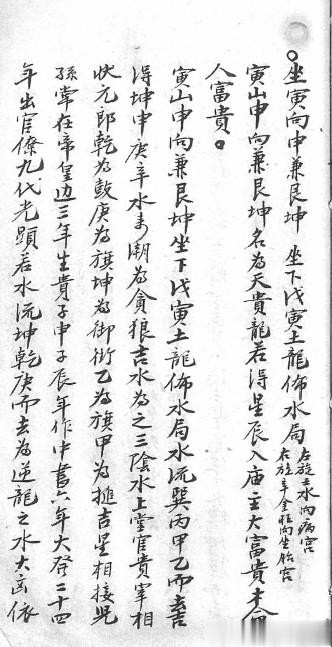 坐寅向申兼艮坤 坐下戊寅土龍佈水局
左旋壬水向病宮
右旋辛金旺向坐胎宮
寅山申向兼艮坤名為天貴龍若得星辰入庙主大富貴才命
人富貴。
寅山申向兼艮坤坐下戊寅土龍佈水局水流巽丙甲乙而去吉
得坤申庚辛水来潮為貪狼吉水為之三陰水上堂官貴宰相
状元郎乾為鼓庚為旗坤為御街乙為旗甲為搥吉星相接兒
孫常在帝皇边三年生貴子申子辰年作中書六年大發二十四
年出官僚九代光顯若水流坤乾庚而去為逆龍之水大凶依